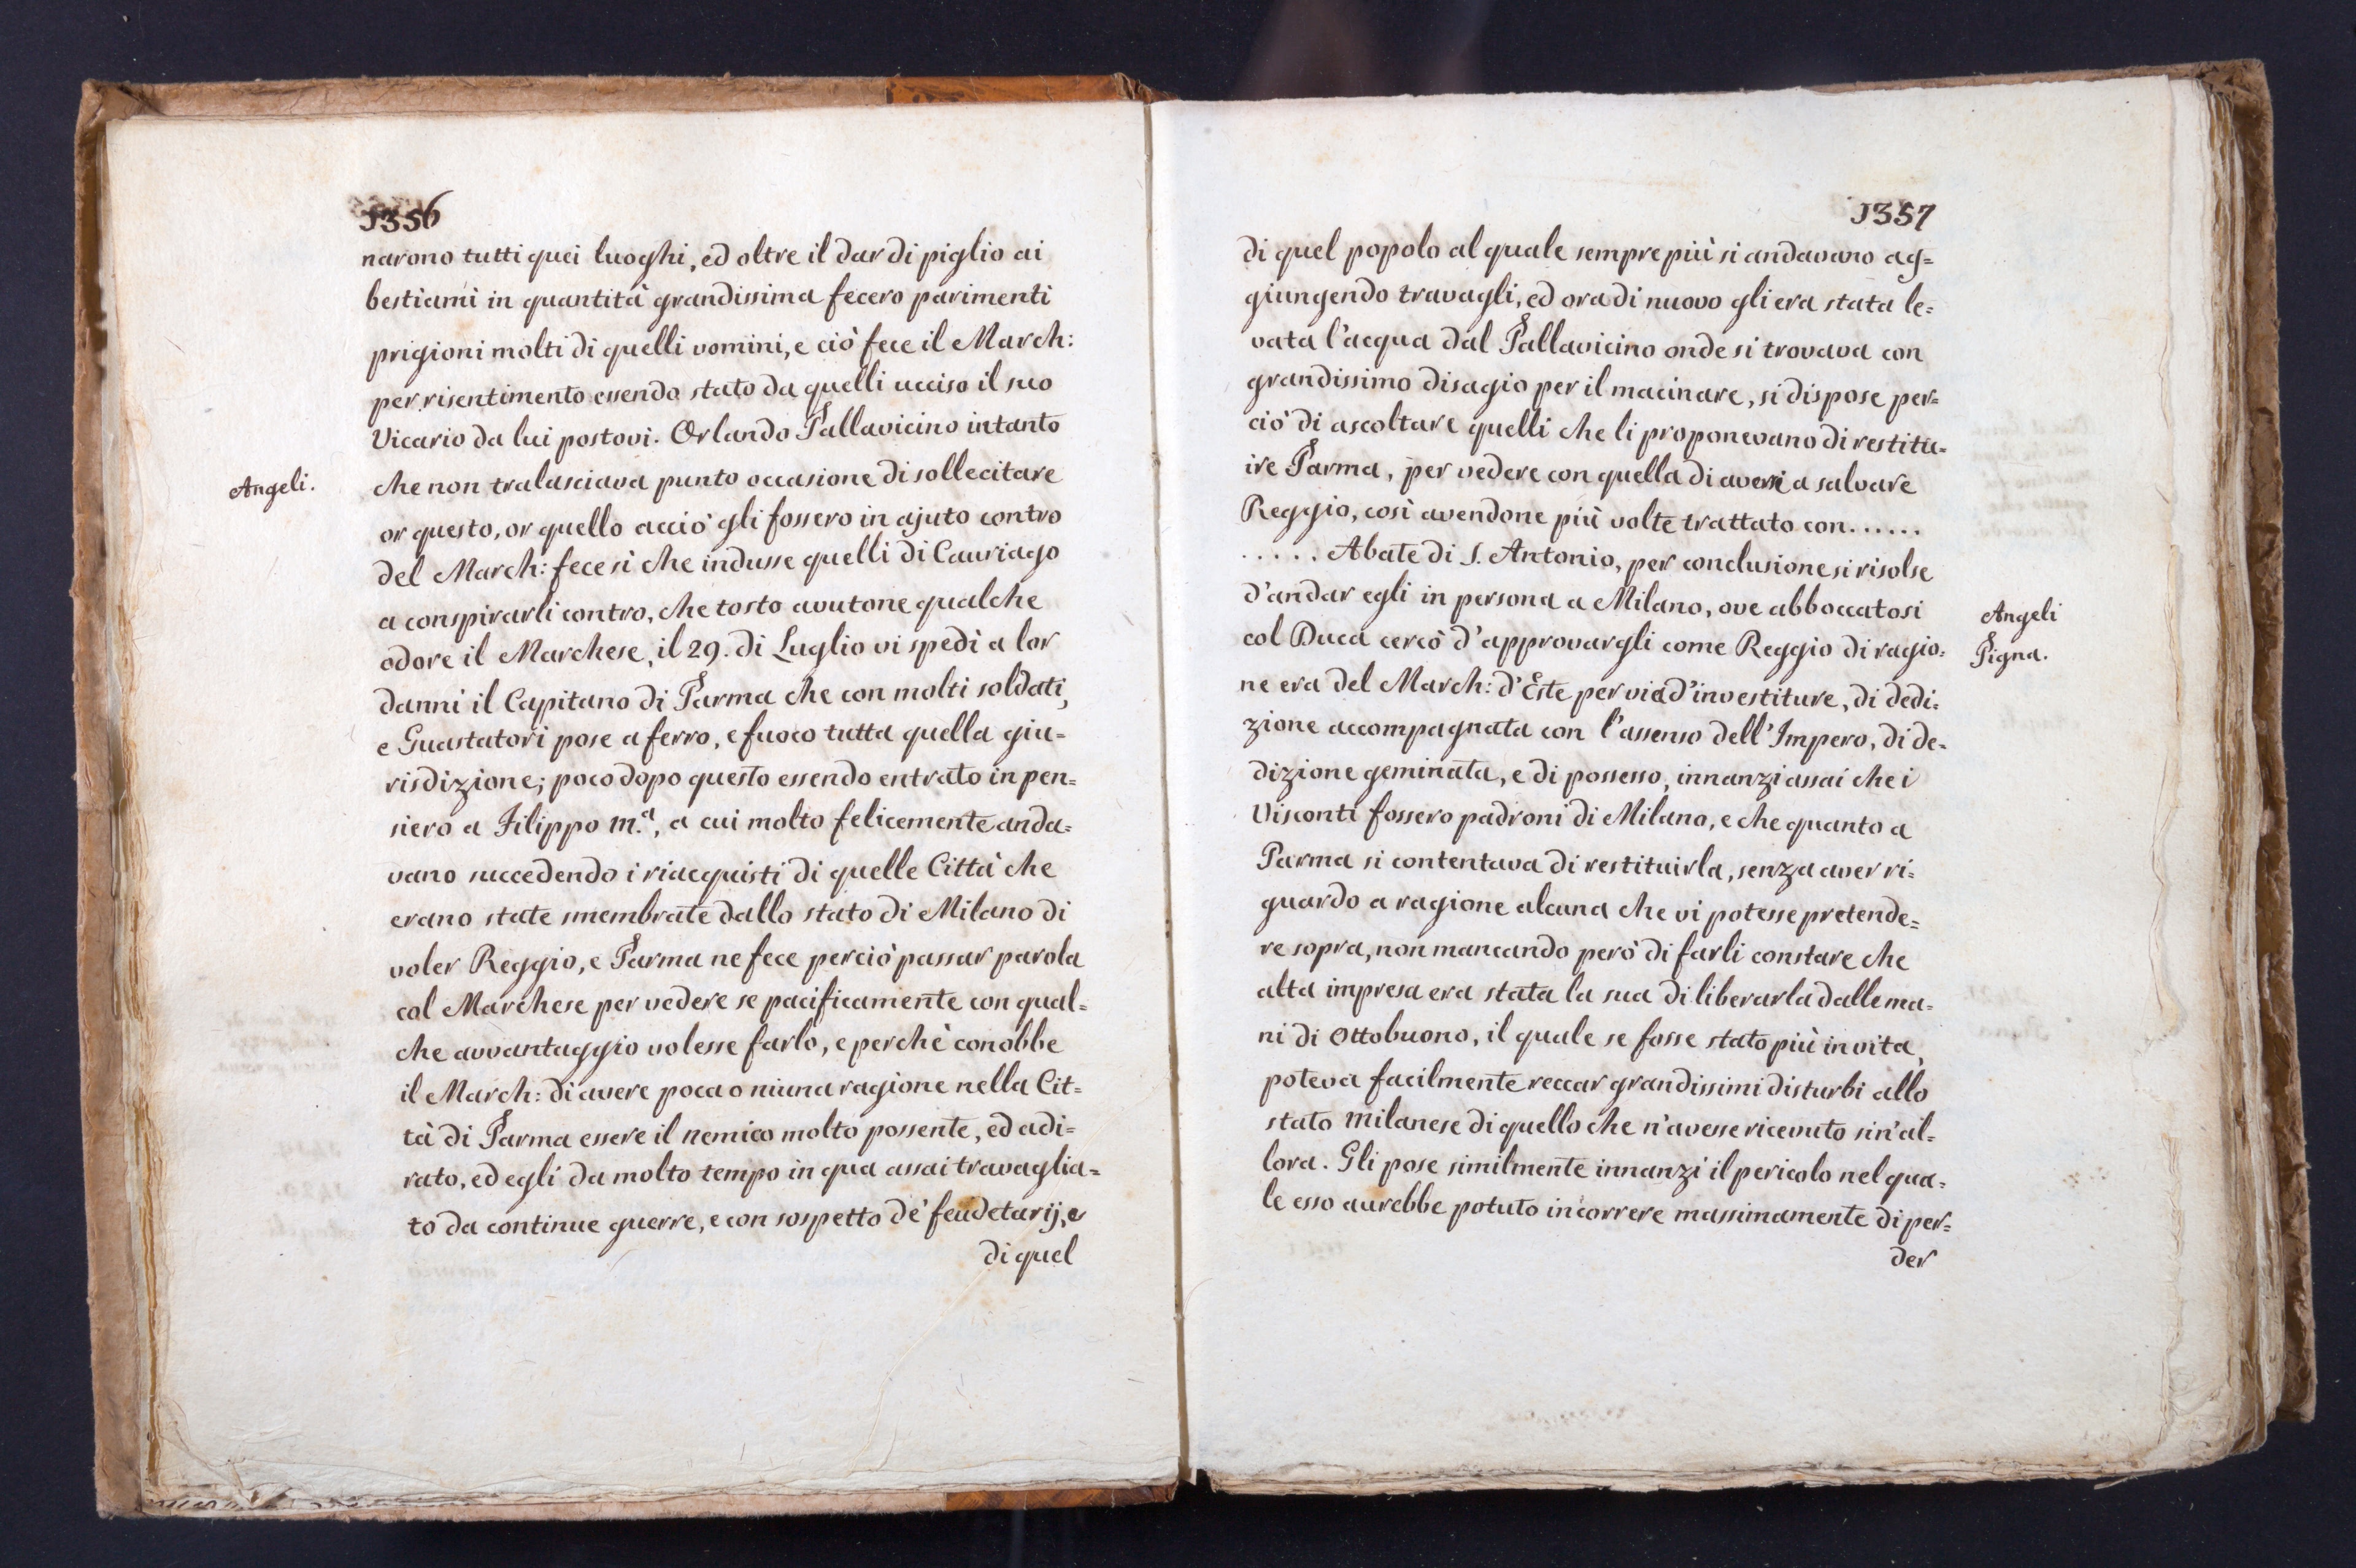 1356
narono tutti quei luoghi, ed oltre il dar di piglio ai
bestiami in quantità grandissima fecero parimenti
prigioni molti di quelli uomini, e ciò fece il March:
per risentimento essendo stato da quelli ucciso il suo
Vicario da lui postovi. Orlando Pallavicino intanto
Angeli.
che non tralasciava punto occasione di sollecitare
or questo, or quello acciò gli fossero in ajuto contro
del March: fece sì che indusse quelli di Cauriago
a conspirarli contro, che tosto avutone qualche
odore il Marchese, il 29. di Luglio vi spedì a lor
danni il Capitano di Parma che con molti soldati,
e Guastatori pose a ferro, e fuoco tutta quella giu=
risdizione; poco dopo questo essendo entrato in pen=
siero a Filippo M.ª, a cui molto felicemente anda=
vano succedendo i riacquisti di quelle Città che
erano state smembrate dallo stato di Milano di
voler Reggio, e Parma ne fece perciò passar parola
col Marchese per vedere se pacificamente con qual=
che avvantaggio volesse farlo, e perchè conobbe
il March: di avere poca o niuna ragione nella Cit=
tà di Parma essere il nemico molto possente, ed adi=
rato, ed egli da molto tempo in qua assai travaglia=
to da continue guerre, e con sospetto de' feudetarij, e
di quel
1357
di quel popolo al quale sempre più si andavano ag=
giungendo travagli, ed ora di nuovo gli era stata le=
vata l'acqua dal Pallavicino onde si trovava con
grandissimo disagio per il macinare, si dispose per=
ciò di ascoltare quelli che li proponevano di restitu=
ire Parma, per vedere con quella di aversi a salvare
Reggio, così avendone più volte trattato con......
..... Abate di S. Antonio, per conclusione si risolse
d'andar egli in persona a Milano, ove abboccatosi
Angeli
col Duca cercò d'approvargli come Reggio di ragio=
Pigna.
ne era del March: d'Este per via d'investiture, di dedi=
zione accompagnata con l'assenso dell'Impero, di de=
dizione geminata, e di possesso, innanzi assai che i
Visconti fossero padroni di Milano, e che quanto a
Parma si contentava di restituirla, senza aver ri=
guardo a ragione alcuna che vi potesse pretende=
re sopra, non mancando però di farli constare che
alta impresa era stata la sua di liberarla dalle ma=
ni di Ottobuono, il quale se fosse stato più in vita,
poteva facilmente reccar grandissimi disturbi allo
stato Milanese di quello che n'avesse ricevuto sin'al=
lora. Gli pose similmente innanzi il pericolo nel qua=
le esso aurebbe potuto incorrere massimamente di per=
der